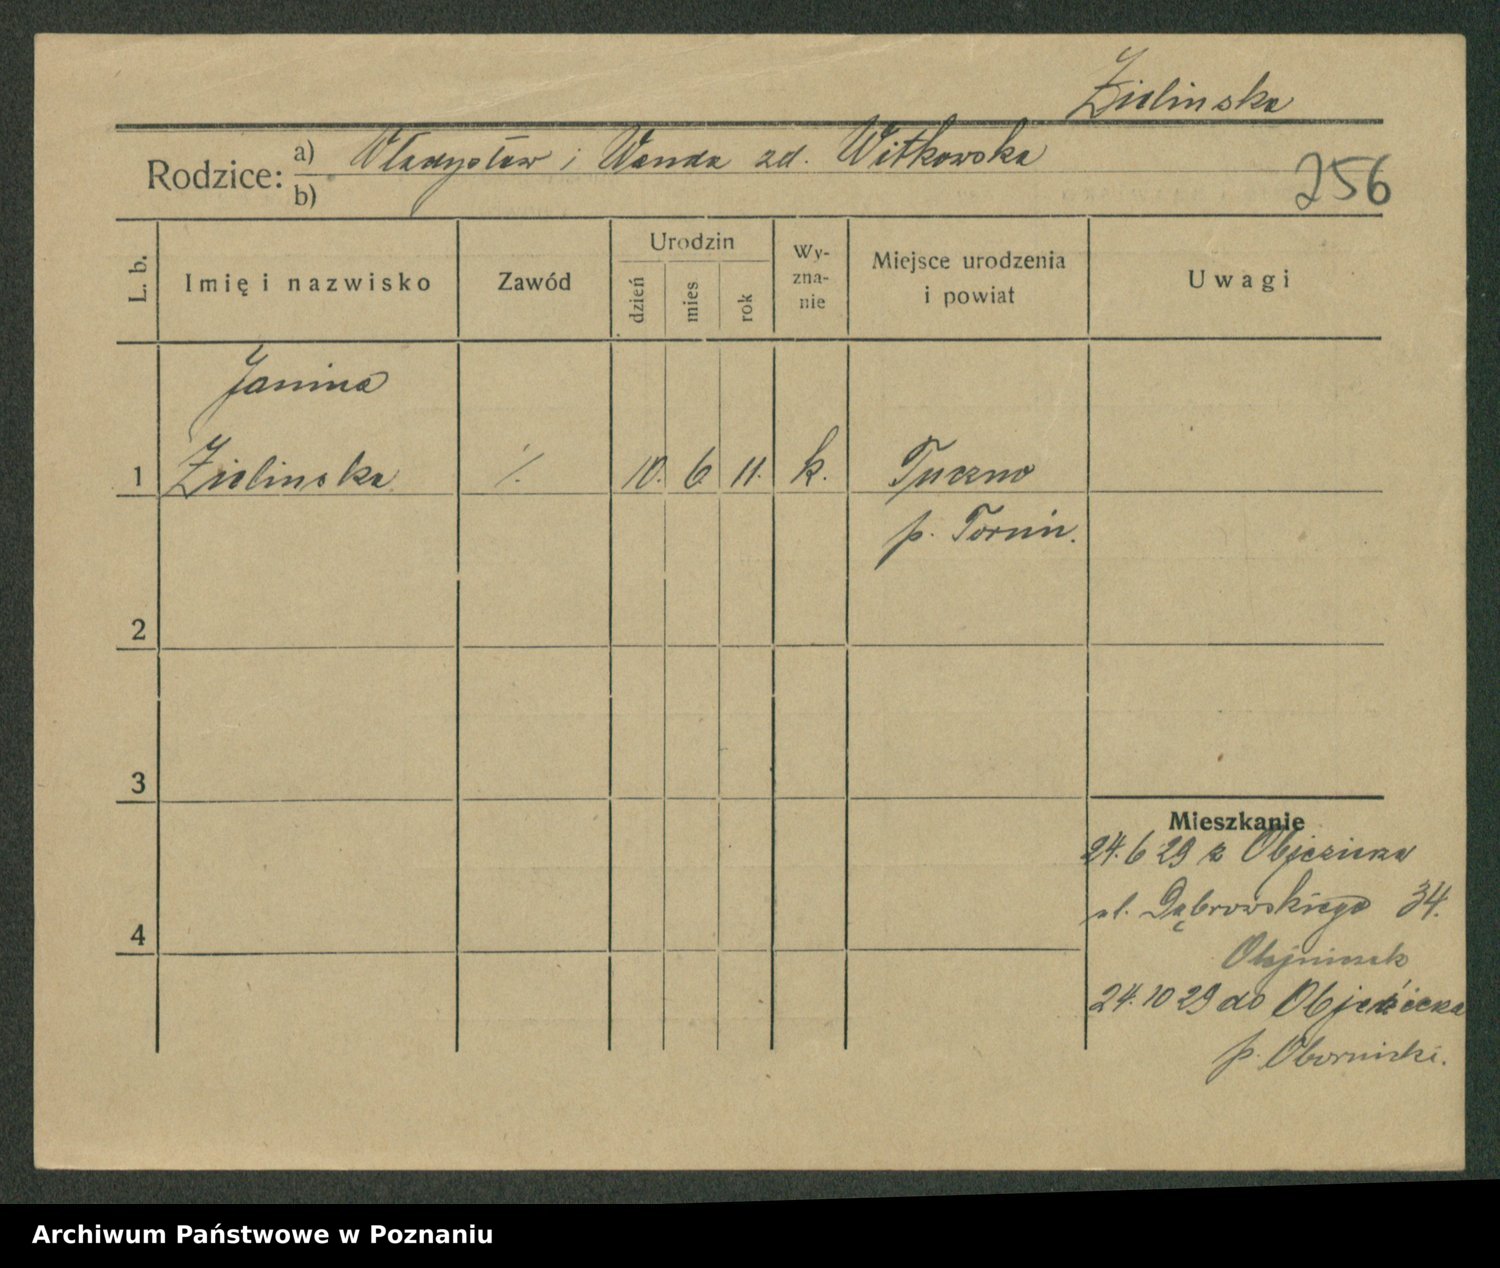 Zielinska
Rodzice: a) Władysław i Wanda zd. Witkowska
b)
256
L. b.
Imię i nazwisko
Zawód
Urodzin
dzień
mies
rok
Wy-
zna-
nie
Miejsce urodzenia
i powiat
Uwagi
Janina
1 Zielinska ./. 10. 6 11. k. Tuczno
p. Torun.
2
3
4
Mieszkanie
24.6 29 z Objezierza
ul. Dąbrowskiego 34.
Olejniczak
24.10 29 do Objezierza
p. Obornicki.
Archiwum Państwowe w Poznaniu